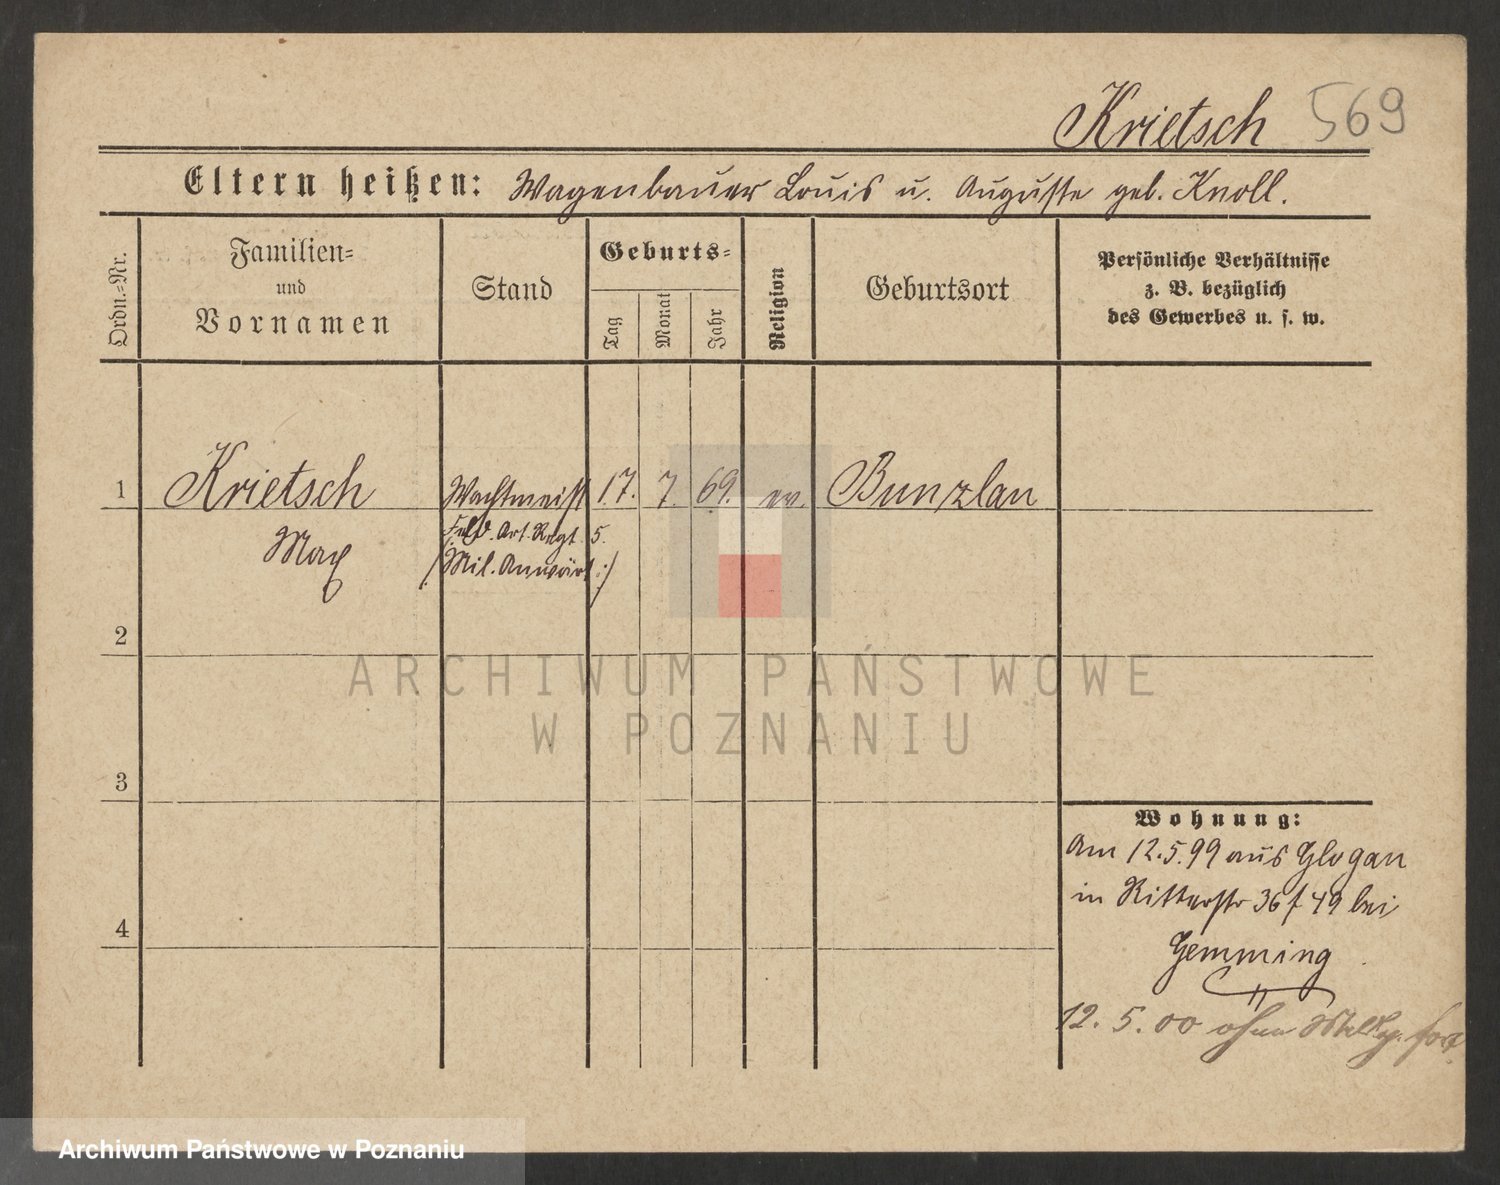 Krietsch 569
Eltern heißen: Wagenbauer Louis u. Auguste geb. Knoll.
Ordn.=Nr.
Familien=
und
Vornamen
Stand
Geburts=
Tag
Monat
Jahr
Religion
Geburtsort
Persönliche Verhältnisse
z. B. bezüglich
des Gewerbes u. s. w.
1 Krietsch Wachtmeist 17. 7. 69. ev. Bunzlau
Feld. Art. Regt. 5.
Max
(Mil. Anwärt:)
2
3
4
Wohnung:
Am 12.5.99 aus Glogau
in Ritterstr 36 f 49 bei
Gemming
12. 5. 00 ohne Meldg. fort
ARCHIWUM PAŃSTWOWE
W POZNANIU
Archiwum Państwowe w Poznaniu